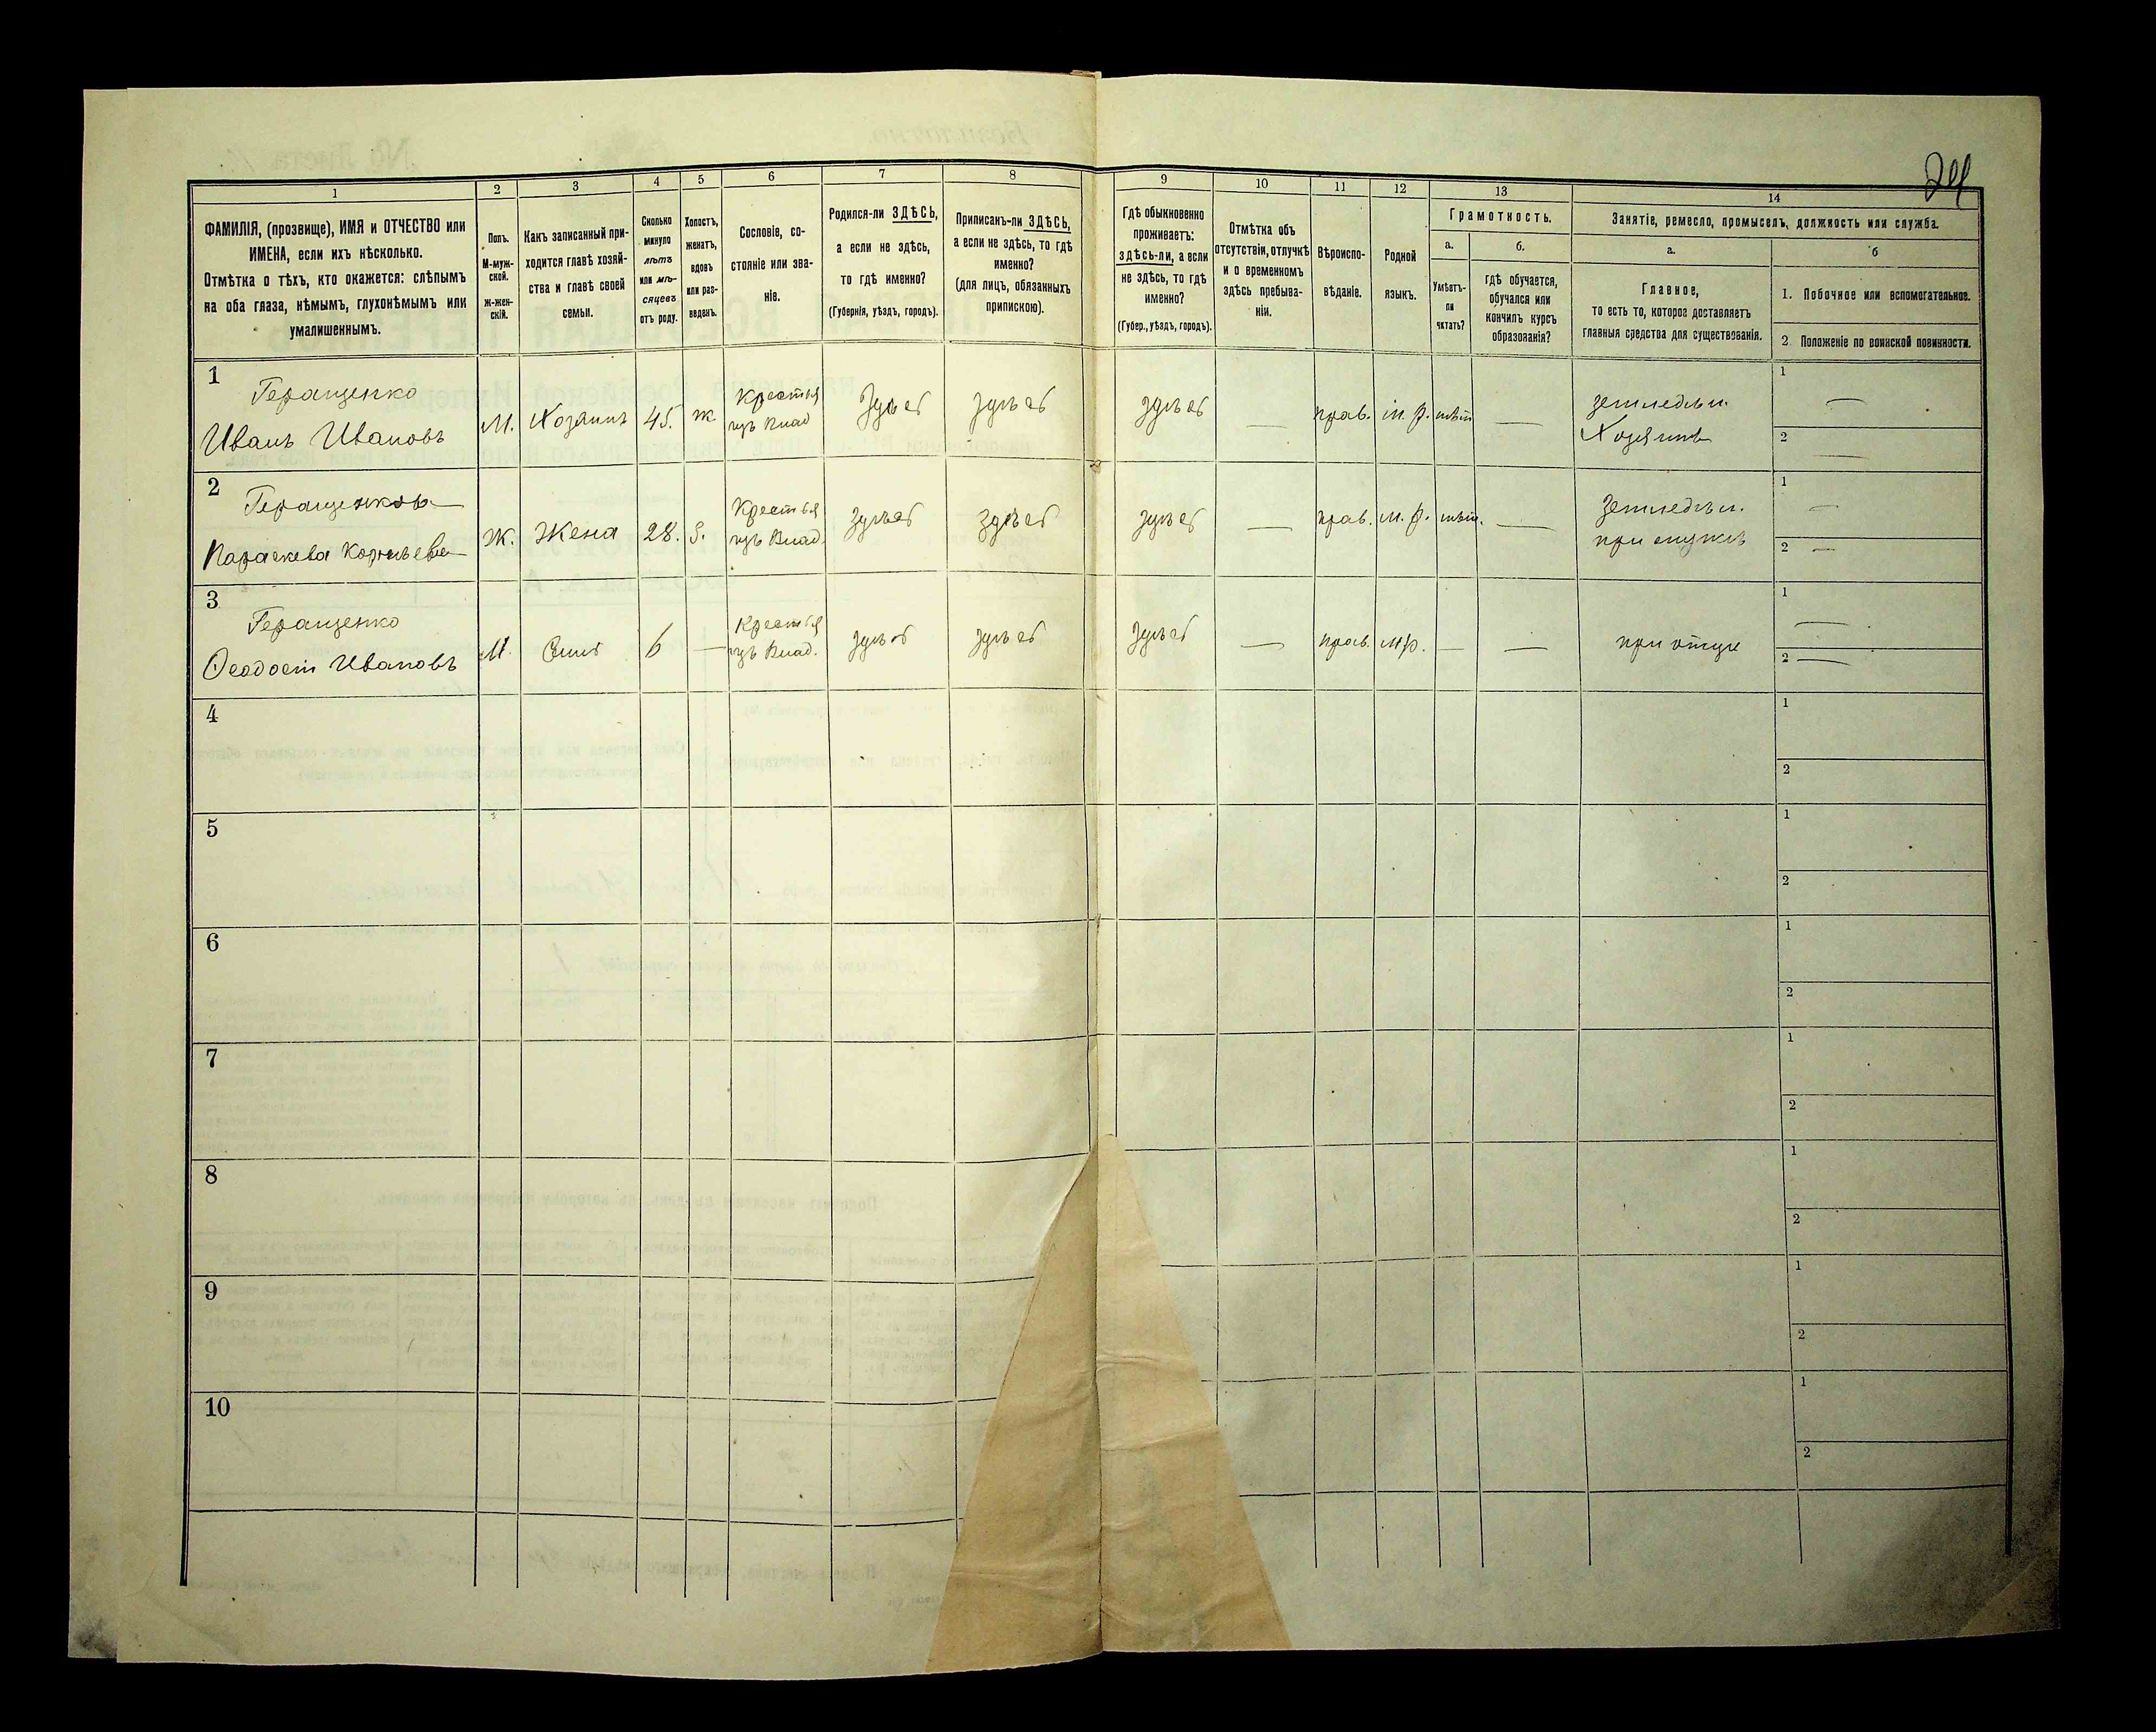 24
1
2
3
4
5
6
7
8
9
10
11
12
13
14
ФАМИЛІЯ, (прозвище), ИМЯ и ОТЧЕСТВО или
ИМЕНА, если ихъ нѣсколько.
Отмѣтка о тѣхъ, кто окажется: слѣпымъ
на оба глаза, нѣмымъ, глухонѣмымъ или
умалишеннымъ.
Полъ.
М-муж-
ской.
Ж-жен-
скій.
Какъ записанный при-
ходится главѣ хозяй-
ства и главѣ своей
семьи.
Сколько
минуло
лѣтъ
или мѣ-
сяцевъ
отъ роду.
Холостъ,
женатъ,
вдовъ
или раз-
веденъ.
Сословіе, со-
стояніе или зва-
ніе.
Родился-ли ЗДѢСЬ,
а если не здѣсь,
то гдѣ именно?
(Губернія, уѣздъ, городъ).
Приписанъ-ли ЗДѢСЬ,
а если не здѣсь, то гдѣ
именно?
(для лицъ, обязанныхъ
припискою).
Гдѣ обыкновенно
проживаетъ:
здѣсь-ли, а если
не здѣсь, то гдѣ
именно?
(Губер., уѣздъ, городъ).
Отмѣтка объ
отсутствіи, отлучкѣ
и о временномъ
здѣсь пребыва-
ніи.
Вѣроиспо-
вѣданіе.
Родной
языкъ.
Грамотность.
а.
б.
Умѣетъ-
ли
читать?
гдѣ обучается,
обучался или
кончилъ курсъ
образованія?
Занятіе, ремесло, промыселъ, должность или служба.
а.
б
Главное,
то есть то, которое доставляетъ
главныя средства для существованія.
1. Побочное или вспомогательное.
2. Положеніе по воинской повинности.
1
Геращенко
Иванъ Ивановъ
М.
Хозяинъ
45.
ж
Крестья
изъ Влад
Здѣсь
здѣсь
здѣсь
—
прав.
м. р.
нѣт
—
земледѣл.
Хозяинъ
1 —
2 —
2
Геращенкова
Параскева Корнѣева
Ж.
Жена
28.
з.
Крестья
изъ Влад.
здѣсь
здѣсь
здѣсь
—
прав.
м. р.
нѣт.
—
земледѣл.
при мужѣ
1 —
2 —
3
Геращенко
Ѳеодосій Ивановъ
М.
Сынъ
6
—
Крестья
изъ Влад.
здѣсь
здѣсь
здѣсь
—
прав.
м р.
—
—
при отцѣ
1 —
2 —
4
1
2
5
1
2
6
1
2
7
1
2
8
1
2
9
1
2
10
1
2